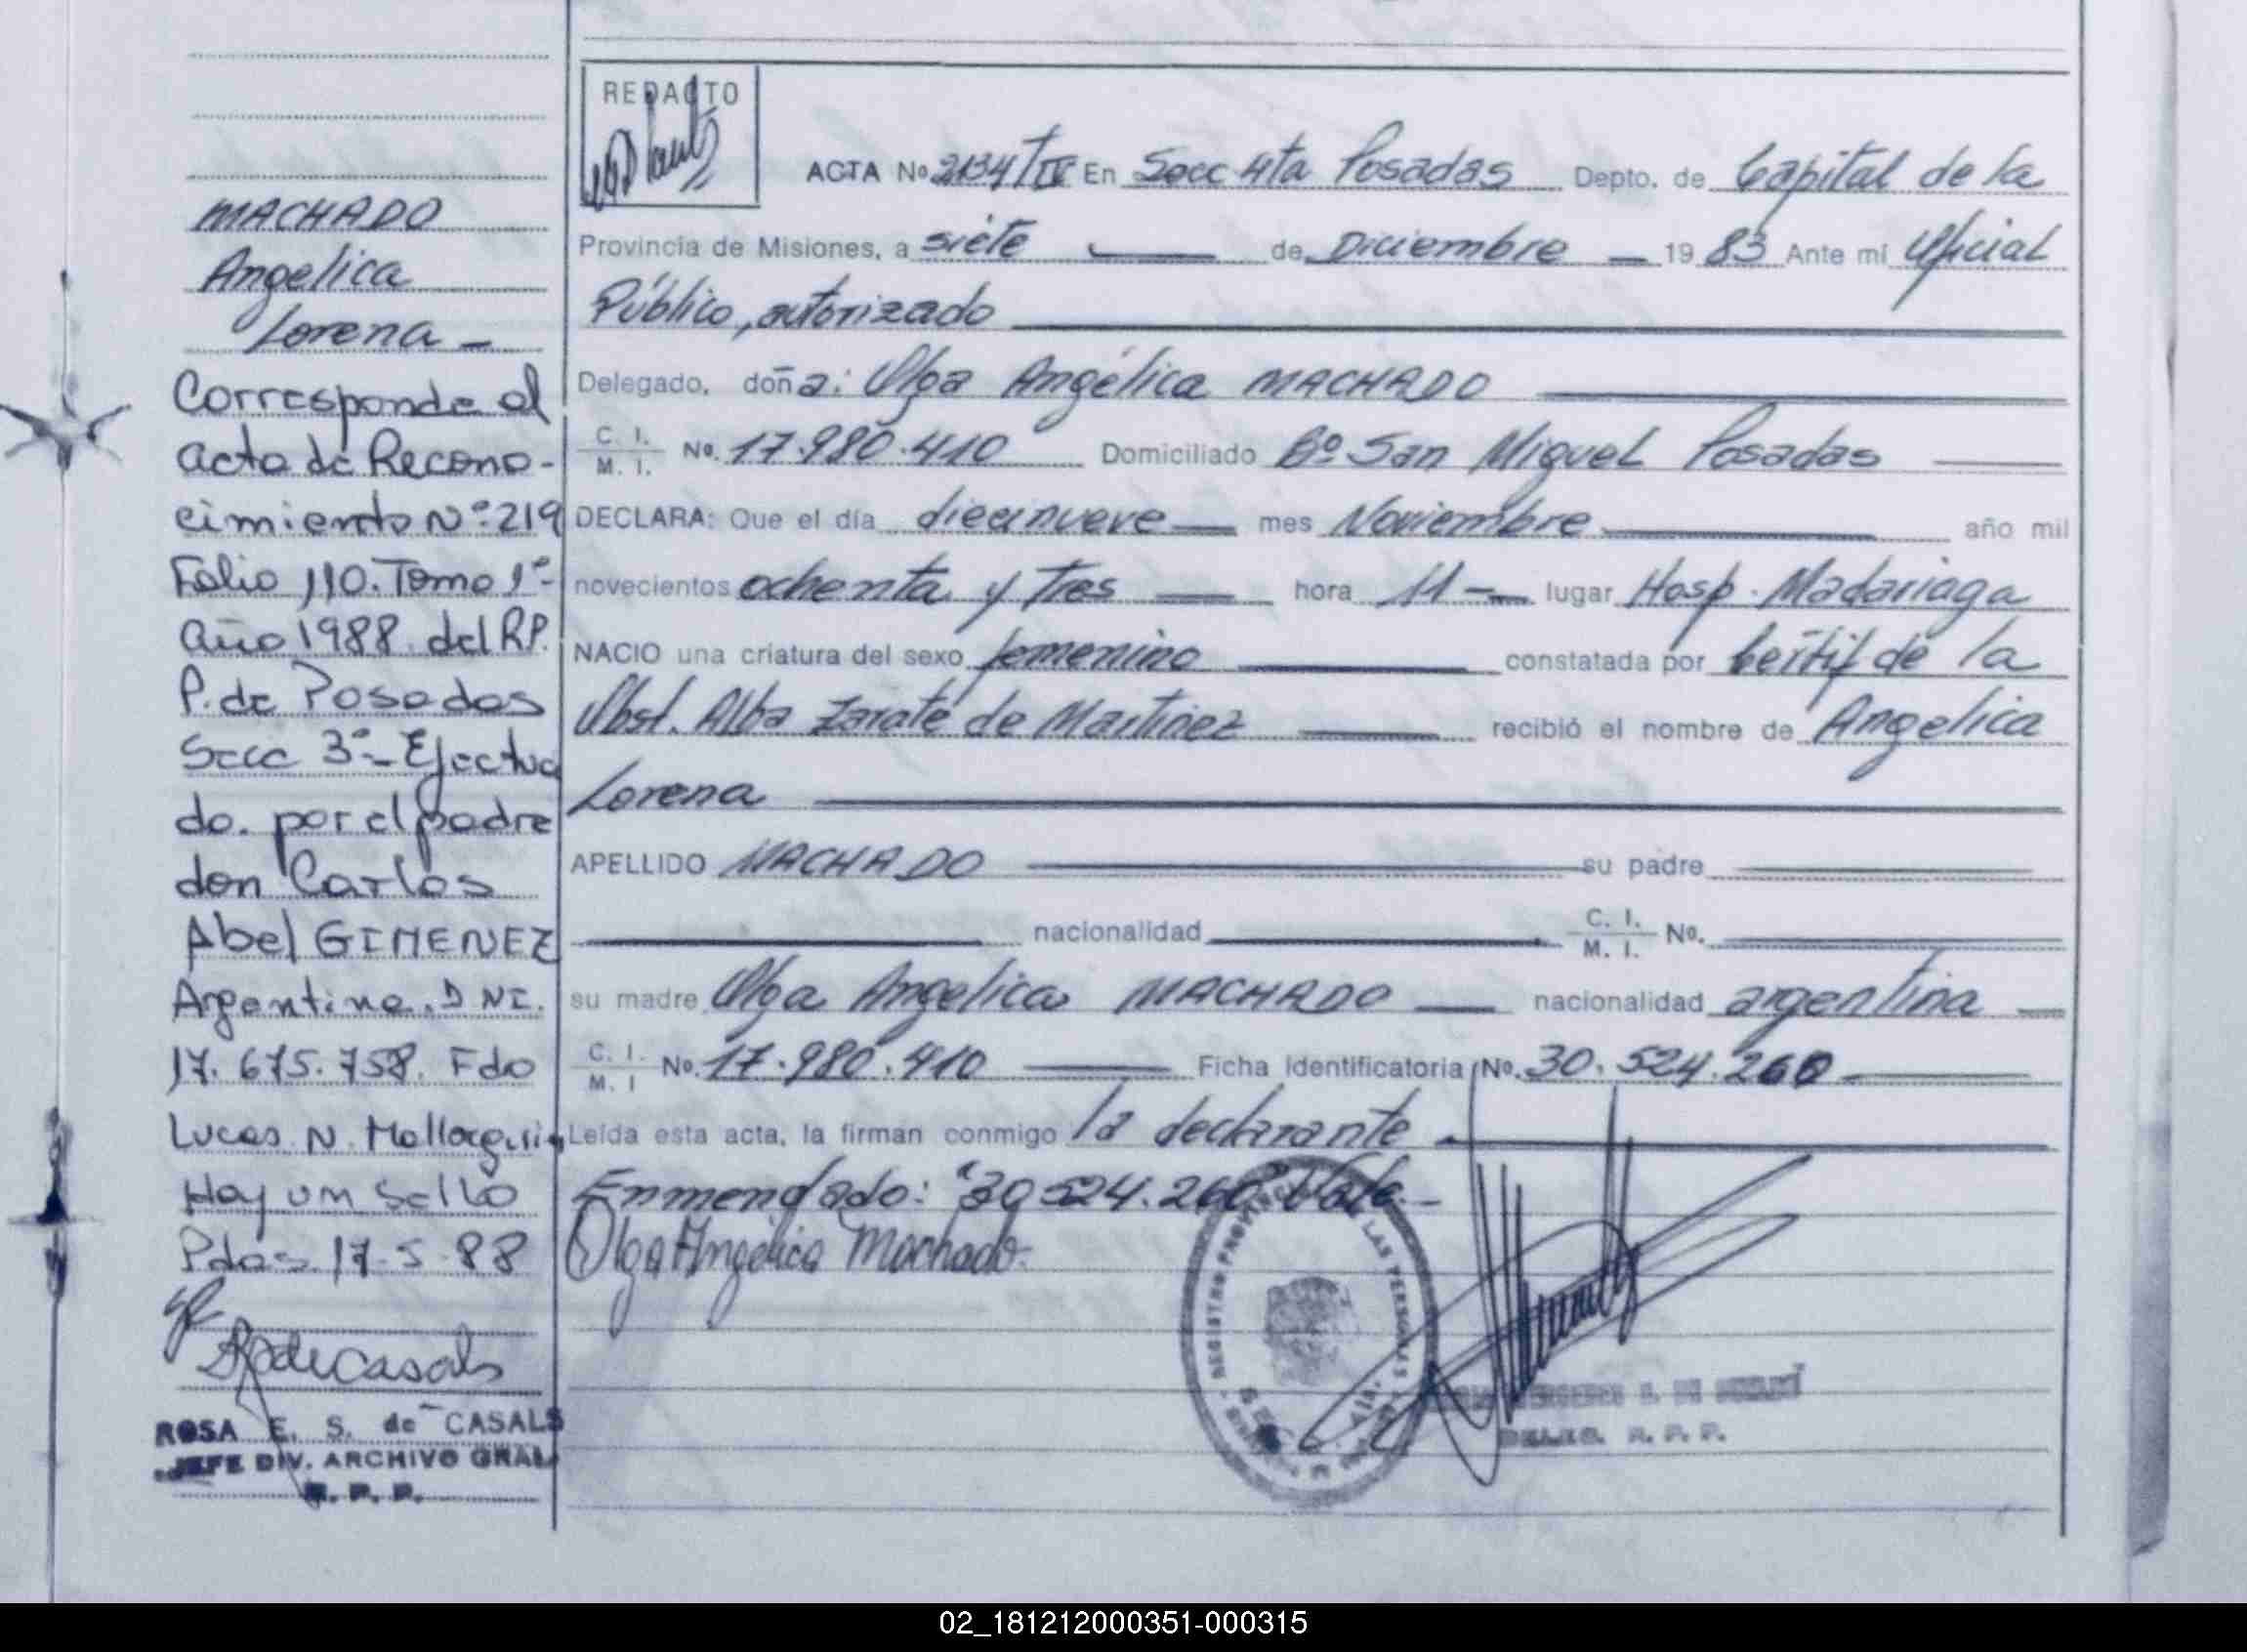 MACHADO
Angelica
Lorena _
Corresponde al
acta de Recono-
cimiento Nº 219
Folio 110. Tomo 1º-
año 1988. del R.P.
P. de Posadas
Secc 3º- Efectua
do. por el padre
don Carlos
Abel GIMENEZ
Argentino. D NI.
17. 675. 758. Fdo
Lucas N. Mallorquin
Hay un Sello
Pdas 17-5-88
ROSA E. S. de CASALS
JEFE DIV. ARCHIVO GRAL
R. P. P.
REDACTO
ACTA No 2134/IV En Secc 4ta Posadas Depto. de Capital de la
Provincia de Misiones, a siete de Diciembre 19 83 Ante mí Oficial
Público, autorizado
Delegado, doña: Olga Angélica MACHADO
C. I. M. I. No. 17.980.410 Domiciliado Bº San Miguel Posadas
DECLARA: Que el día diecinueve mes Noviembre año mil
novecientos ochenta y tres hora 11 lugar Hosp. Madariaga
NACIO una criatura del sexo femenino constatada por Certif de la
Obst. Alba Zarate de Martinez recibió el nombre de Angelica
Lorena
APELLIDO MACHADO su padre
nacionalidad C. I. M. I. No.
su madre Olga Angelica MACHADO nacionalidad argentina
C. I. M. I No. 17.980.410 Ficha Identificatoria No. 30.524.260
Leída esta acta, la firman conmigo la declarante
Enmendado: "30 524.260" Vale.-
Olga Angélica Machado.
DELEG. R. P. P.
02_181212000351-000315